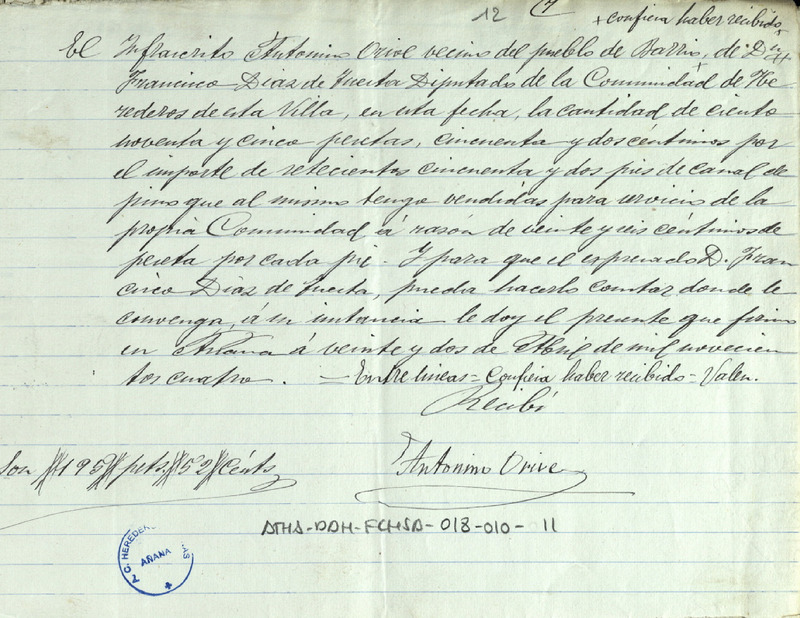 12 7
+ confiesa haber recibido +
El Infrascrito Antonino Orive vecino del pueblo de Barrio, + de Dn
Francisco Diaz de Tuesta Diputado de la Comunidad de He-
rederos de esta Villa, en esta fecha, la cantidad de ciento
noventa y cinco pesetas, cincuenta y dos céntimos por
el importe de setecientos cincuenta y dos pies de canal de
pino que al mismo tengo vendidas para servicio de la
propia Comunidad á razón de veinte y seis céntimos de
peseta por cada pié. Y para que el expresado D. Fran
cisco Diaz de Tuesta, pueda hacerlo constar donde le
convenga, á su instancia le doy el presente que firmo
en Añana á veinte y dos de Abril de mil novecien
tos cuatro. = Entre lineas = confiesa haber recibido = Valen.
Recibí
Son #195# pts #52# cénts
Antonino Orive
ATHA-DAH-FCHSA-018-010-11
C. HEREDEROS AÑANA